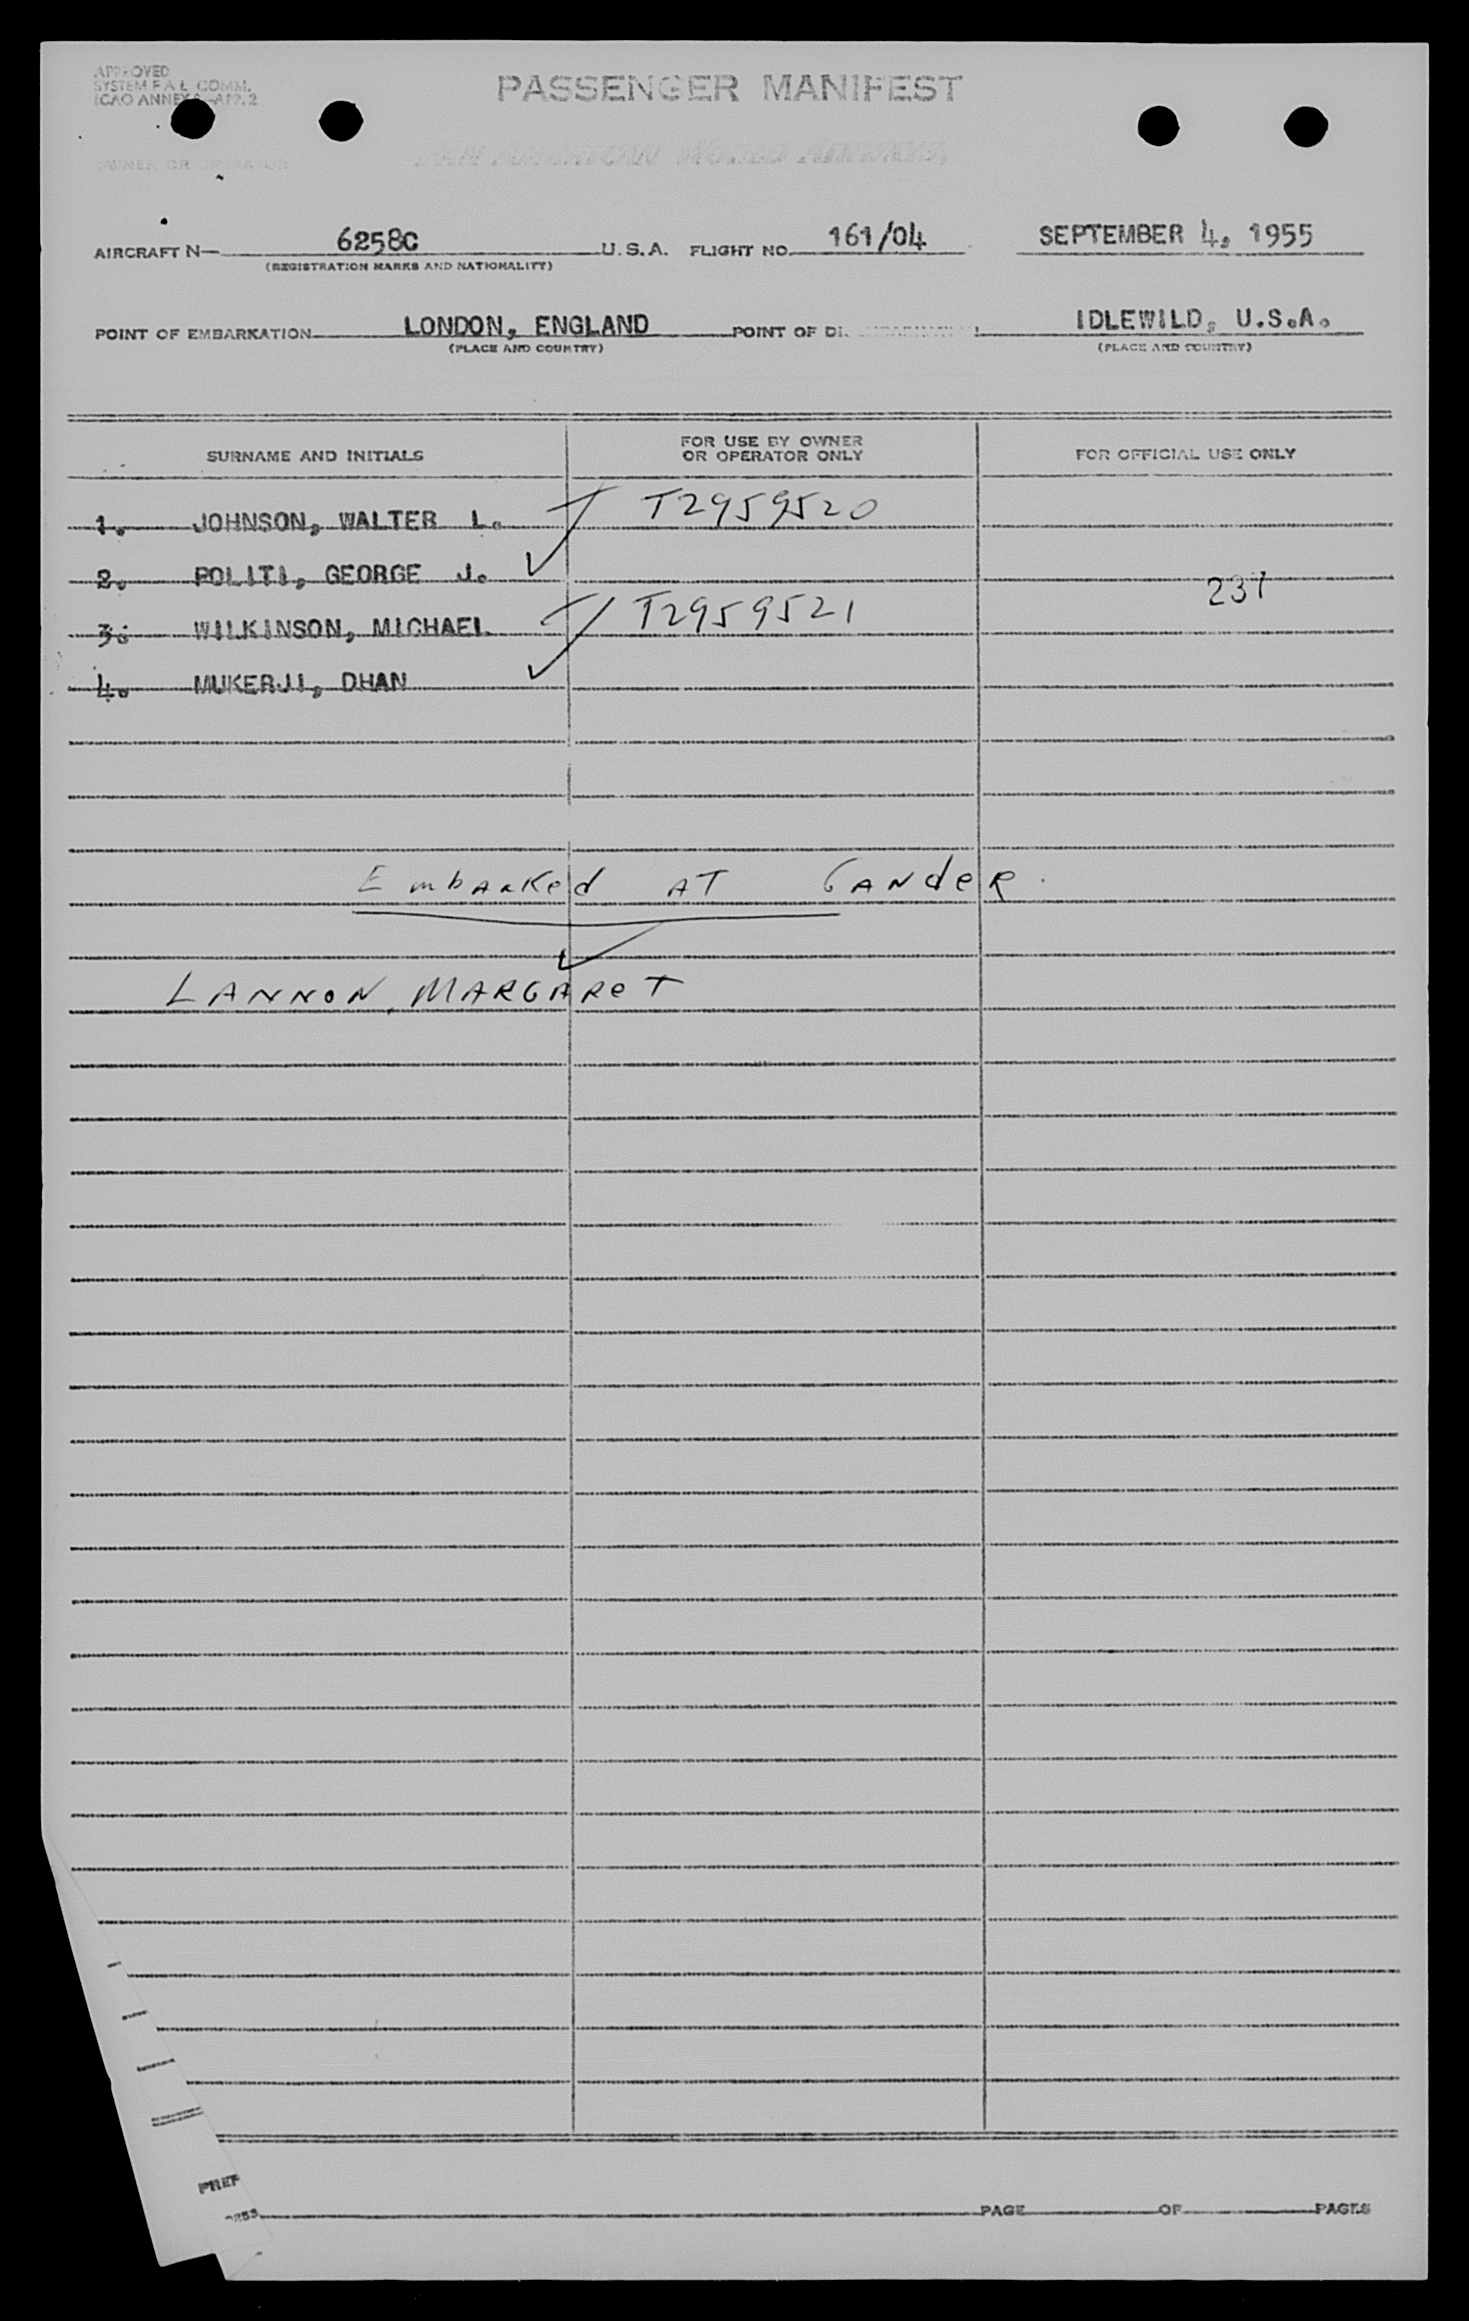 APPROVED
SYSTEM F A L COMM.
ICAO ANNEX 9-APP. 2
PASSENGER MANIFEST
OWNER OR OPERATOR
PAN AMERICAN WORLD AIRWAYS,
AIRCRAFT N- 6258C U.S.A. FLIGHT NO. 161/04 SEPTEMBER 4, 1955
(REGISTRATION MARKS AND NATIONALITY)
POINT OF EMBARKATION LONDON, ENGLAND POINT OF IDLEWILD, U.S.A.
(PLACE AND COUNTRY) (PLACE AND COUNTRY)
SURNAME AND INITIALS FOR USE BY OWNER OR OPERATOR ONLY FOR OFFICIAL USE ONLY
1. JOHNSON, WALTER L. T2959520
2. POLITI, GEORGE J.
237
3. WILKINSON, MICHAEL T2959521
4. MUKERJI, DHAN
Embarked AT GANdeR.
LANNON, MARGAReT
PREP
PAGE OF PAGES